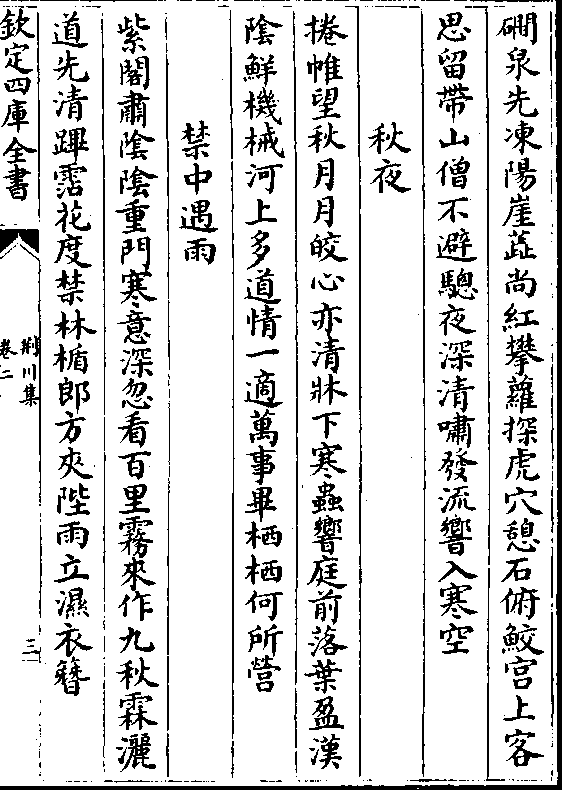 磵泉先凍陽崖蕋尚紅攀蘿探虎穴憩石俯鮫宫上客
思留帶山僧不避驄夜深清嘯發流響入寒空
秋夜
捲帷望秋月月皎心亦清牀下寒蟲響庭前落葉盈漢
隂鮮機械河上多道情一適萬事畢栖栖何所營
禁中遇雨
紫閣肅隂隂重門寒意深忽看百里霧來作九秋霖灑
道先清蹕霑花度禁林楯郎方夾陛雨立濕衣簪
欽定四庫全書
荆川集
卷二
三